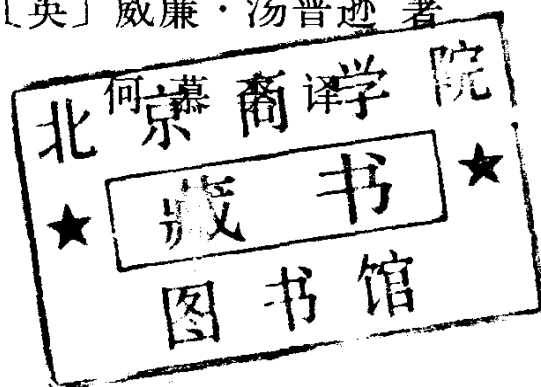 〔英〕威廉·汤普逊 著
何慕 译
北京商学院
★ 藏书 ★
图书馆